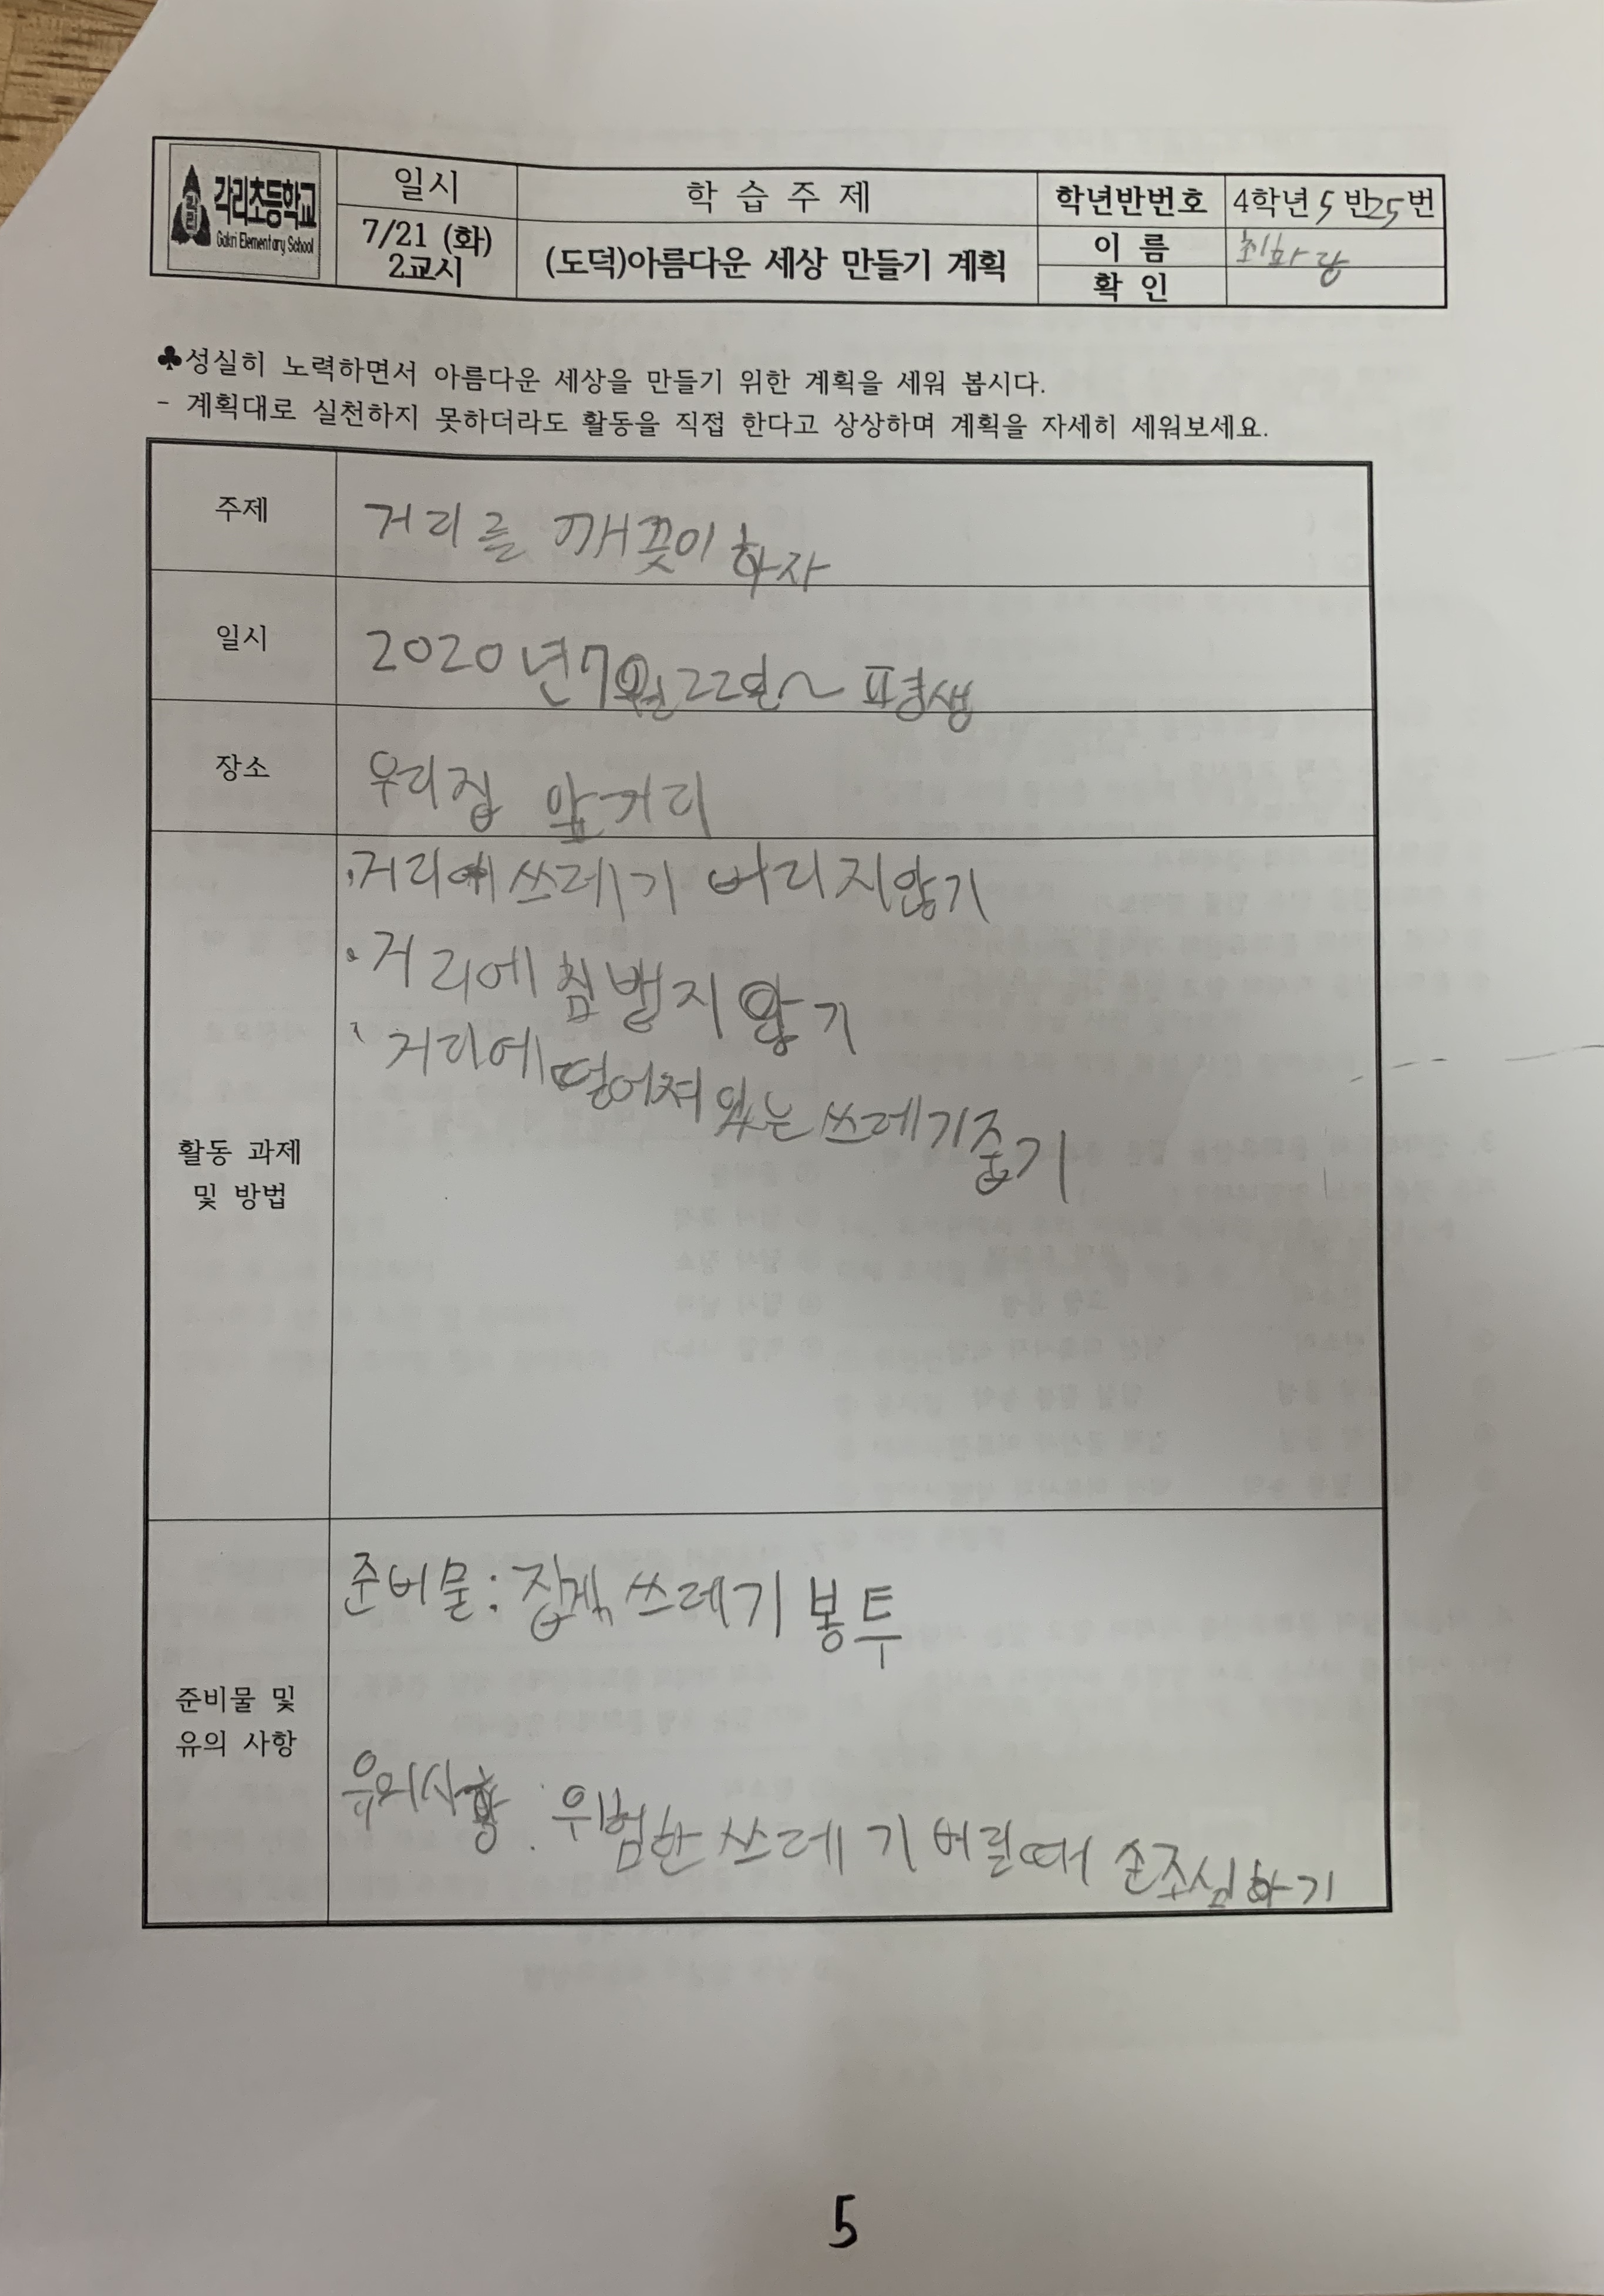 각리
각리초등학교
Gakri Elementary School
일시
학 습 주 제
학년반번호
4학년 5 반25번
7/21 (화)
2교시
(도덕)아름다운 세상 만들기 계획
이 름
확 인
♣성실히 노력하면서 아름다운 세상을 만들기 위한 계획을 세워 봅시다.
- 계획대로 실천하지 못하더라도 활동을 직접 한다고 상상하며 계획을 자세히 세워보세요.
주제
거리를 깨끗이 하자
일시
2020년 7월 22일~ 평생
장소
우리집 앞거리
활동 과제
및 방법
·거리에 쓰레기 버리지않기
·거리에 침뱉지 않기
·거리에 떨어져 있는 쓰레기줍기
준비물 및
유의 사항
준비물: 집게, 쓰레기 봉투
유의사항: 위험한 쓰레기 버릴때 손조심하기
5